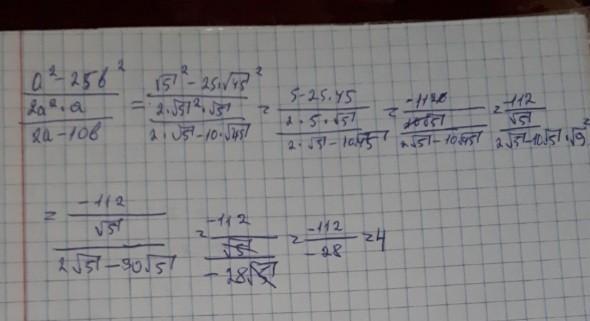 (a² - 25b²)/(2a² · a)/(2a - 10b) = (√5² - 25·√45²)/(2·√5²·√5)/(2·√5 - 10·√45) = (5 - 25·45)/(2·5·√5)/(2·√5 - 10√45) = (-1120)/(10√5)/(2√5 - 10√45) = (-112)/(√5)/(2√5 - 10√5·√9)
= (-112)/(√5)/(2√5 - 30√5) = (-112)/(√5)/(-28√5) = (-112)/(-28) = 4